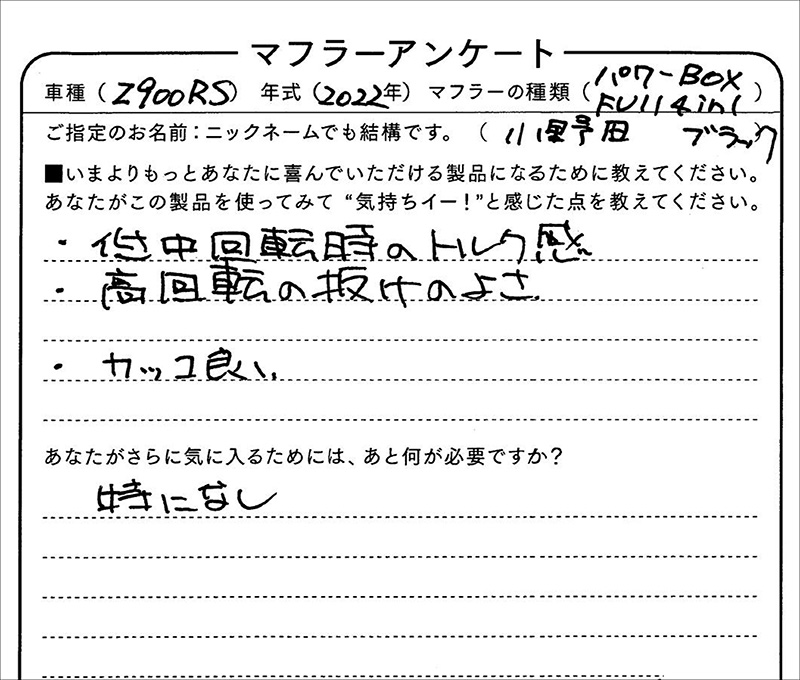 マフラーアンケート
車種（Z900RS） 年式（2022年） マフラーの種類（パワーBOX FULL 4in1 ブラック）
ご指定のお名前：ニックネームでも結構です。（小野田
■いまよりもっとあなたに喜んでいただける製品になるために教えてください。
あなたがこの製品を使ってみて“気持ちイー！”と感じた点を教えてください。
・低中回転時のトルク感
・高回転の抜けのよさ
・カッコ良い、
あなたがさらに気に入るためには、あと何が必要ですか？
特になし